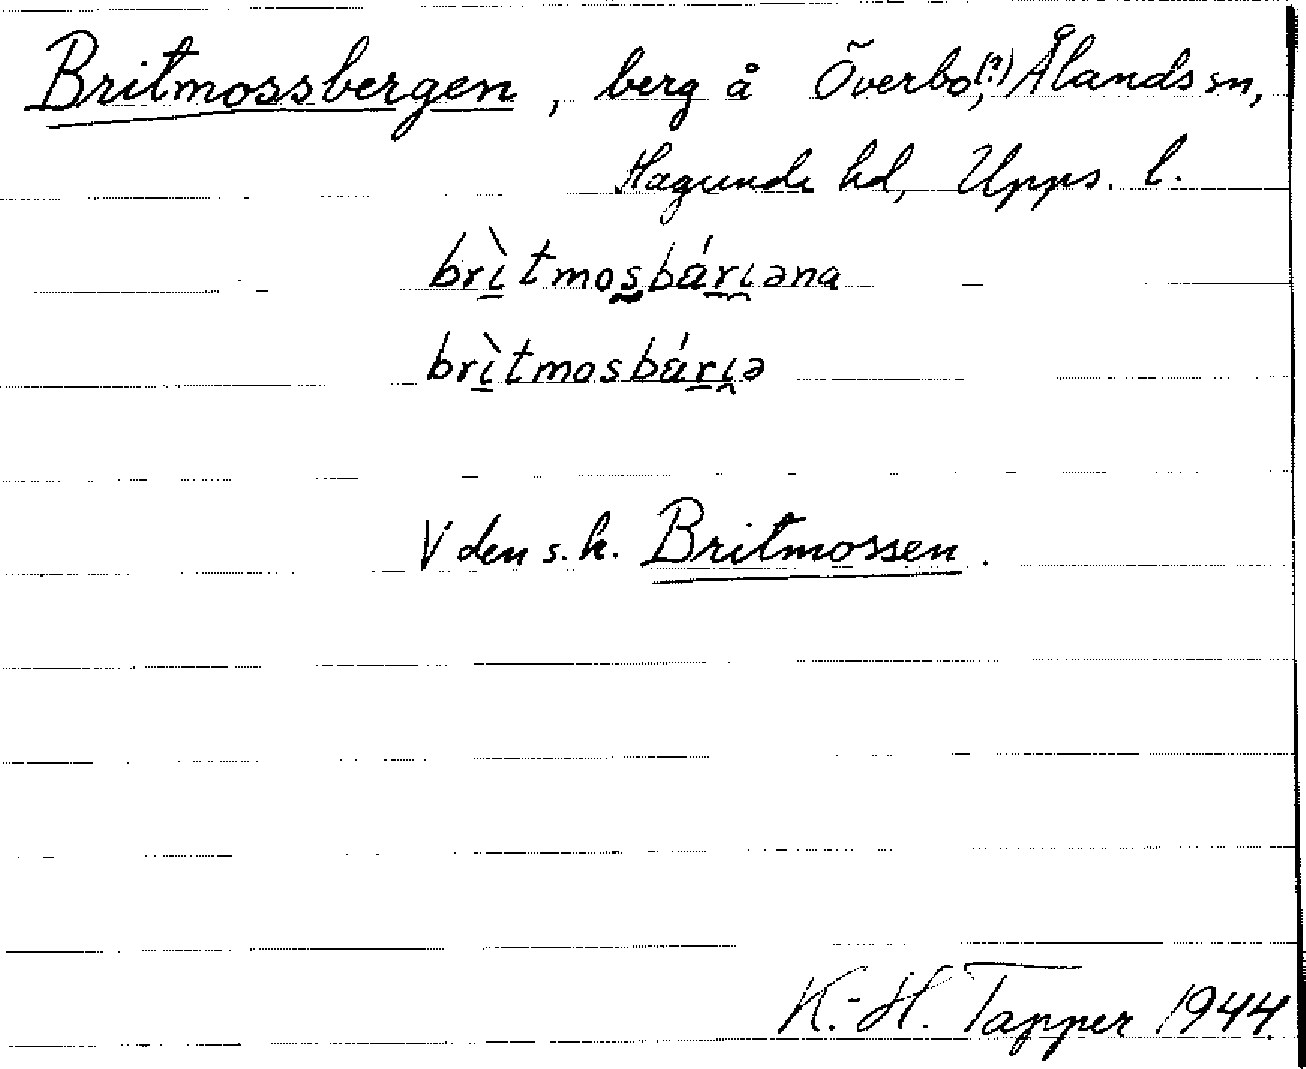 Britmossbergen, berg å Överbo,(?) Ålands sn,
Hagunda hd, Upps. l.
brìtmosbárıəna
brìtmosbárıə
V den s.k. Britmossen.
K.-H. Tapper 1944.